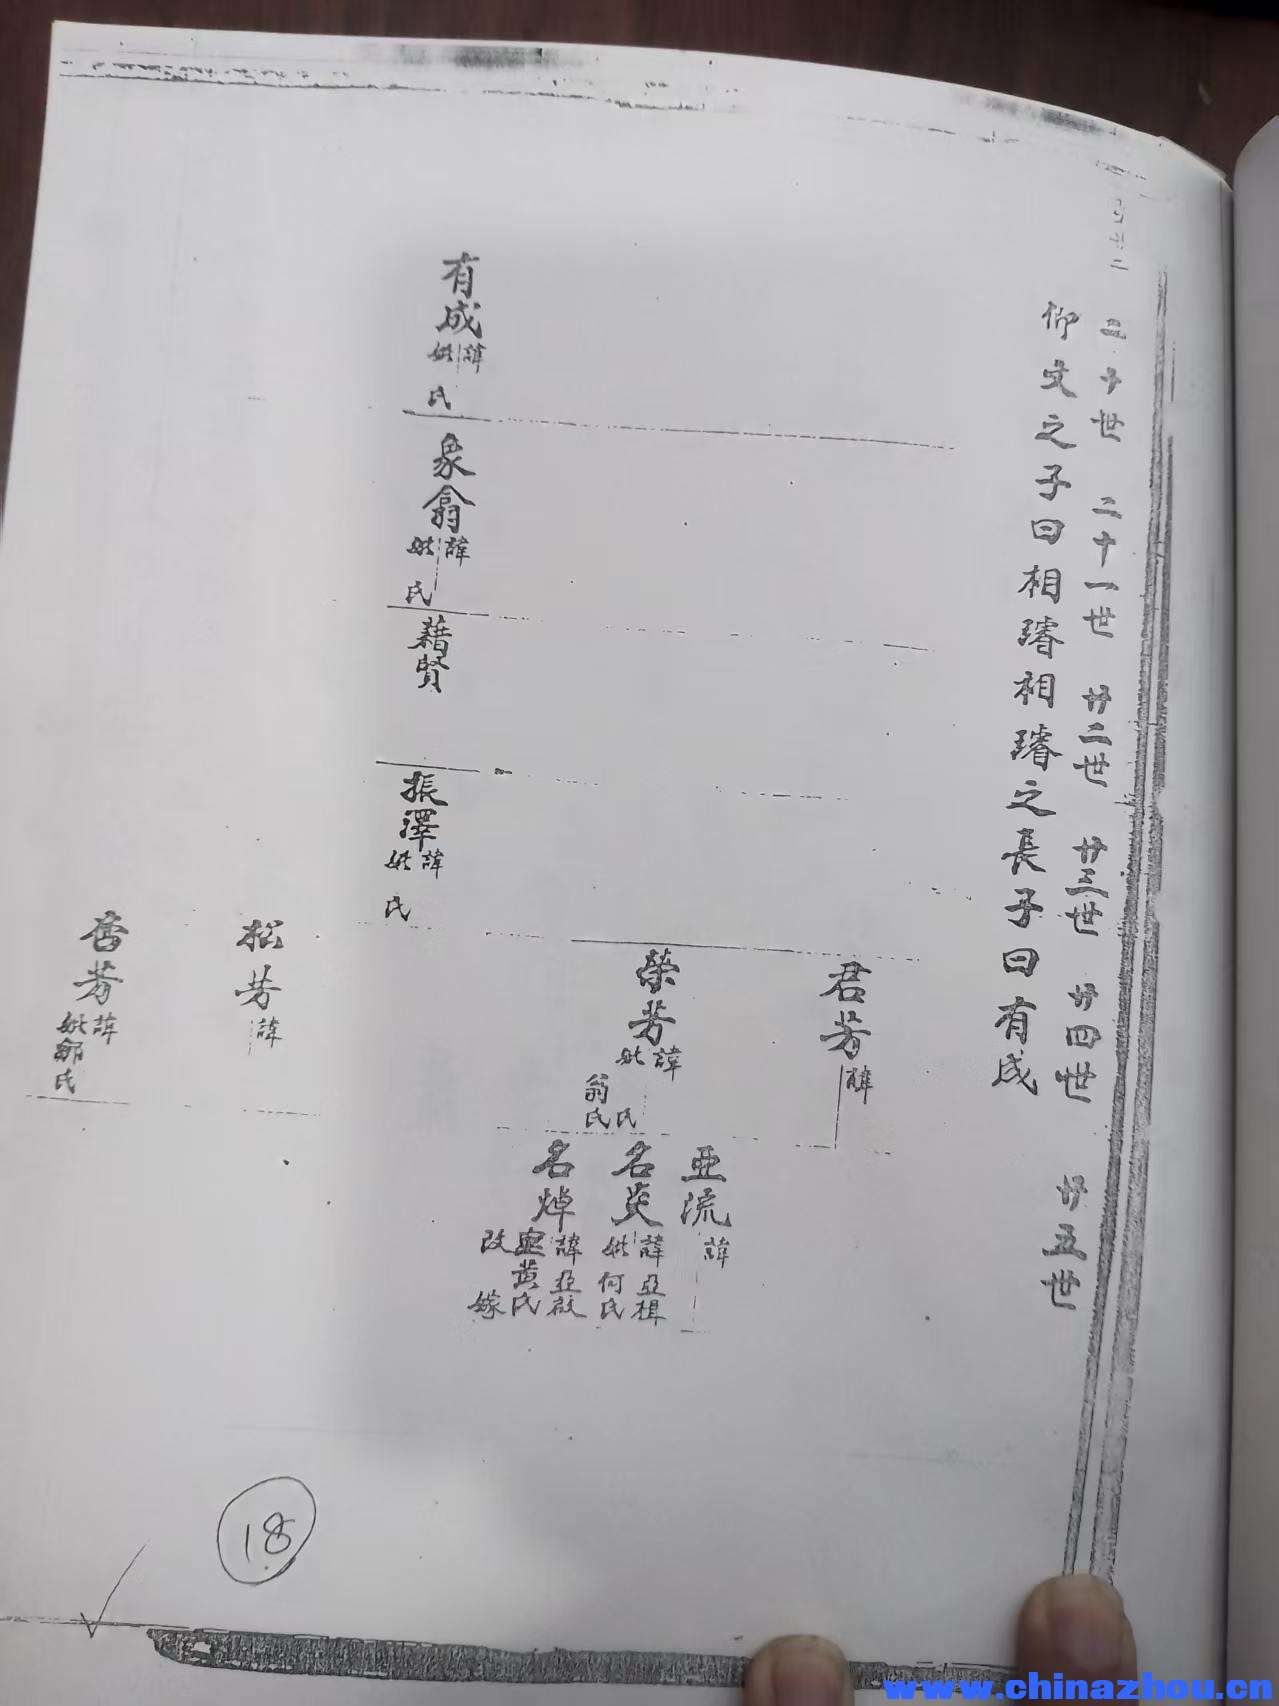 二十世 二十一世 廿二世 廿三世 廿四世 廿五世
仰文之子曰相璿相璿之長子曰有成
有成 諱 妣 氏
象翕 諱 妣 氏
藉賢
振澤 諱 妣 氏
君芳 諱
榮芳 諱 妣 氏 翁氏
松芳 諱
杏芳 諱 妣鄒氏
亞流 諱
名英 諱亞楫 妣何氏
名焯 諱亞啟 室黃氏 改嫁
18
www.chinazhou.cn